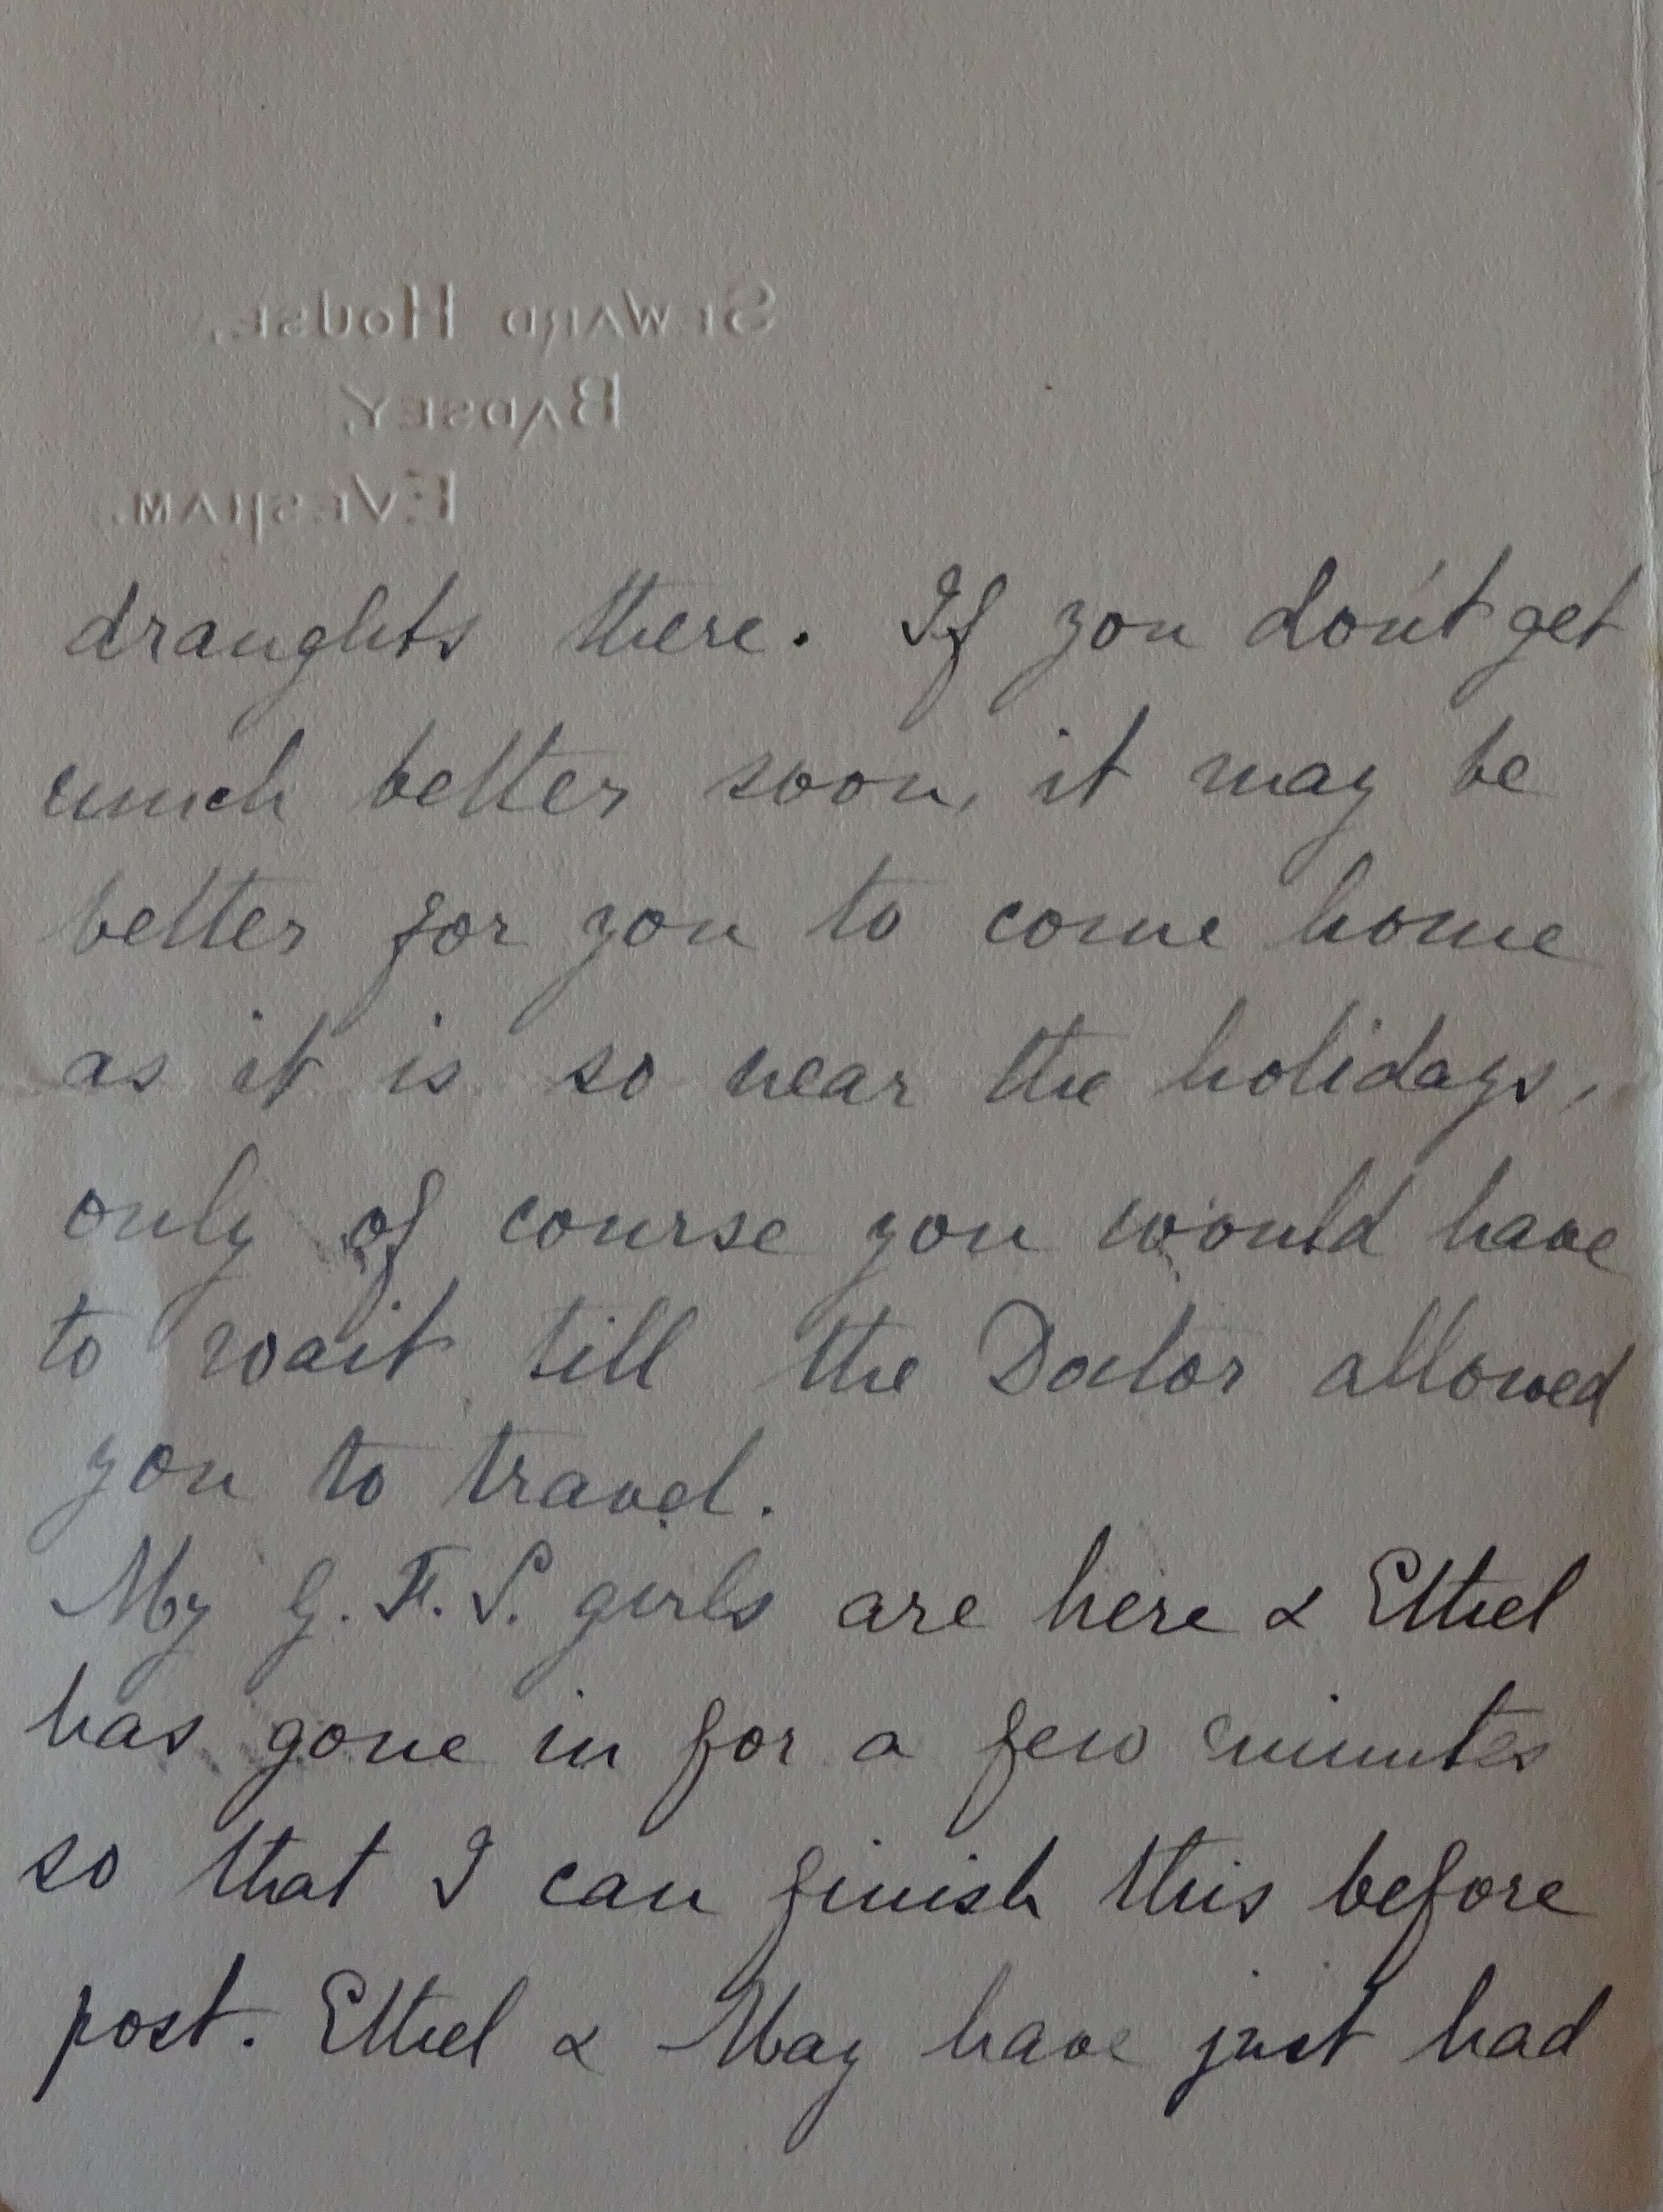 Seward House,
Badsey,
Evesham.
draughts there. If you don't get
much better soon, it may be
better for you to come home
as it is so near the holidays,
only of course you would have
to wait till the Doctor allowed
you to travel.
My G.F.S. girls are here & Ethel
has gone in for a few minutes
so that I can finish this before
post. Ethel & May have just had